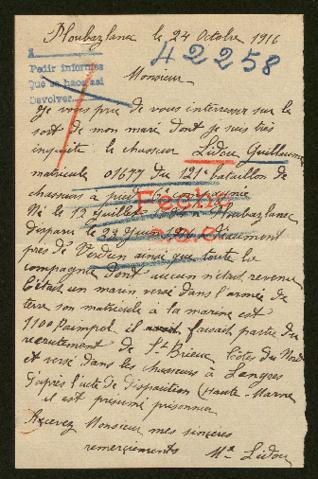 Ploubazlanec le 24 Octobre 1916
42258
Pedir informes
Que se hace así
Devolver
Monsieur
Je vous prie de vous interresser sur le
sort de mon mari dont je suis très
inquiète le chasseur Lidou Guillaume
matricule 01677 du 121e bataillon de
chasseurs à pied compagnie
Fecho
Né le 13 Juillet à Ploubazlanec
disparu le 23 Juin 1916
près de Verdun ainsi que toute la
compagnie dont aucun n'est revenu
C'était un marin versé dans l'armée de
terre son matricule à la marine est
1100 Paimpol il faisait partie du
recrutement de St Brieuc Côtes du Nord
et versé dans les chasseurs à Langres
d'après l'acte de disparition (Haute-Marne
il est présumé prisonnier
Recevez Monsieur mes sincères
remerciements Me Lidou